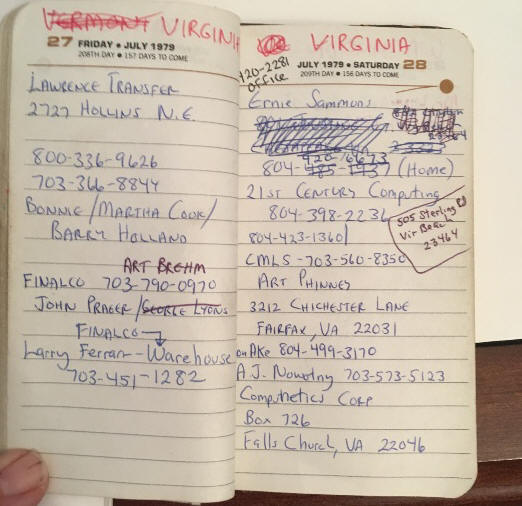 VERMONT VIRGINIA
27 FRIDAY • JULY 1979
208TH DAY • 157 DAYS TO COME
LAWRENCE TRANSFER
2727 HOLLINS N.E.
800-336-9626
703-366-8844
BONNIE/MARTHA COOK/
BARRY HOLLAND
ART BREHM
FINALCO 703-790-0970
JOHN PRAGER/GEORGE LYONS
FINALCO
Larry Ferran - Warehouse
703-451-1282
VIRGINIA
JULY 1979 • SATURDAY 28
209TH DAY • 156 DAYS TO COME
420-2281
OFFICE
Ernie Sammons
23464
420-6673
804-485-1937 (Home)
21ST CENTURY COMPUTING
804-398-2236
505 Sterling Rd
Vir Beac
23464
804-423-1360
CMLS - 703-560-8350
ART PHINNEY
3212 CHICHESTER LANE
FAIRFAX, VA 22031
Ake 804-499-3170
A.J. Nowotny 703-573-5123
Computhetics CORP
BOX 726
Falls Church, VA 22046